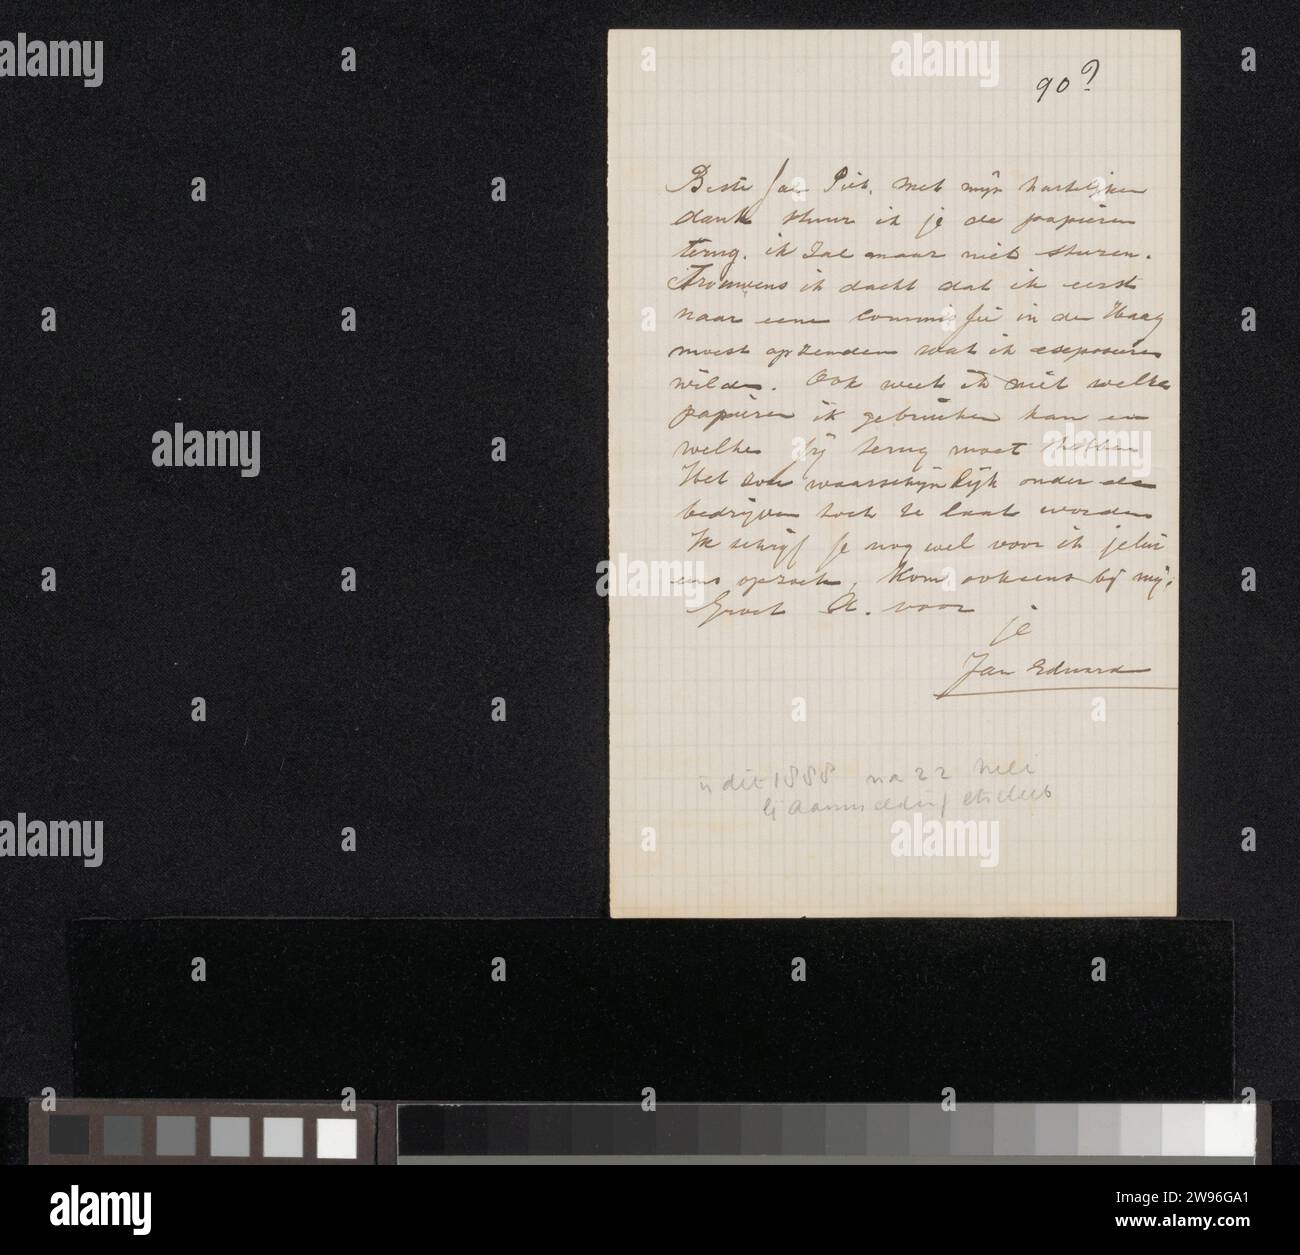 90?
Beste Jan Piet. Met mijn hartelijken
dank stuur ik je de papieren
terug. ik zal maar niet sturen.
Trouwens ik dacht dat ik eerst
naar eene commissie in den Haag
moest opzenden wat ik exposeeren
wilde. Ook weet ik niet welke
papieren ik gebruiken kan en
welke jij terug moet hebben
Het zou waarschijnlijk onder de
bedrijven toch te laat worden
Ik schrijf je nog wel voor ik jelui
eens opzoek, kom ook eens bij mij.
Groet A. voor
je
Jan Edward
is dit 1888 na 22
bij aanmelding etsclub
alamy
Image ID: 2W96GA1
www.alamy.com